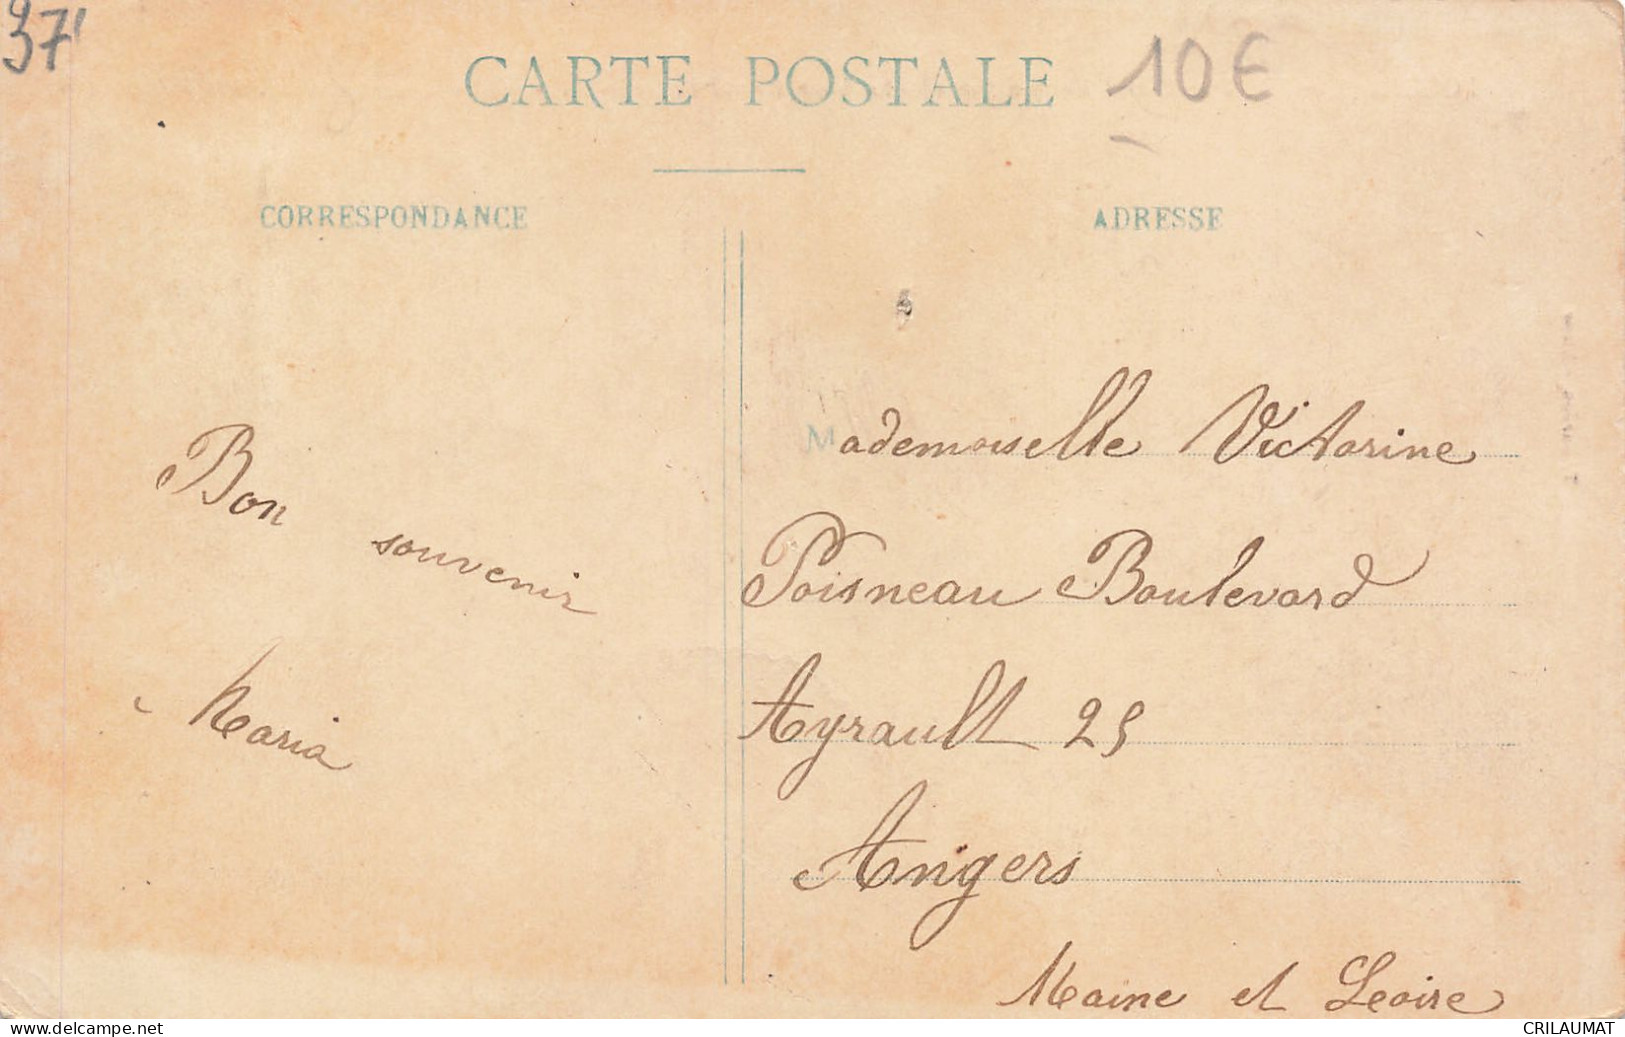 37
CARTE POSTALE
10€
CORRESPONDANCE
ADRESSE
Bon souvenir
Maria
Mademoiselle Victorine
Poisneau Boulevard
Ayrault 25
Angers
Maine et Loire
CRILAUMAT